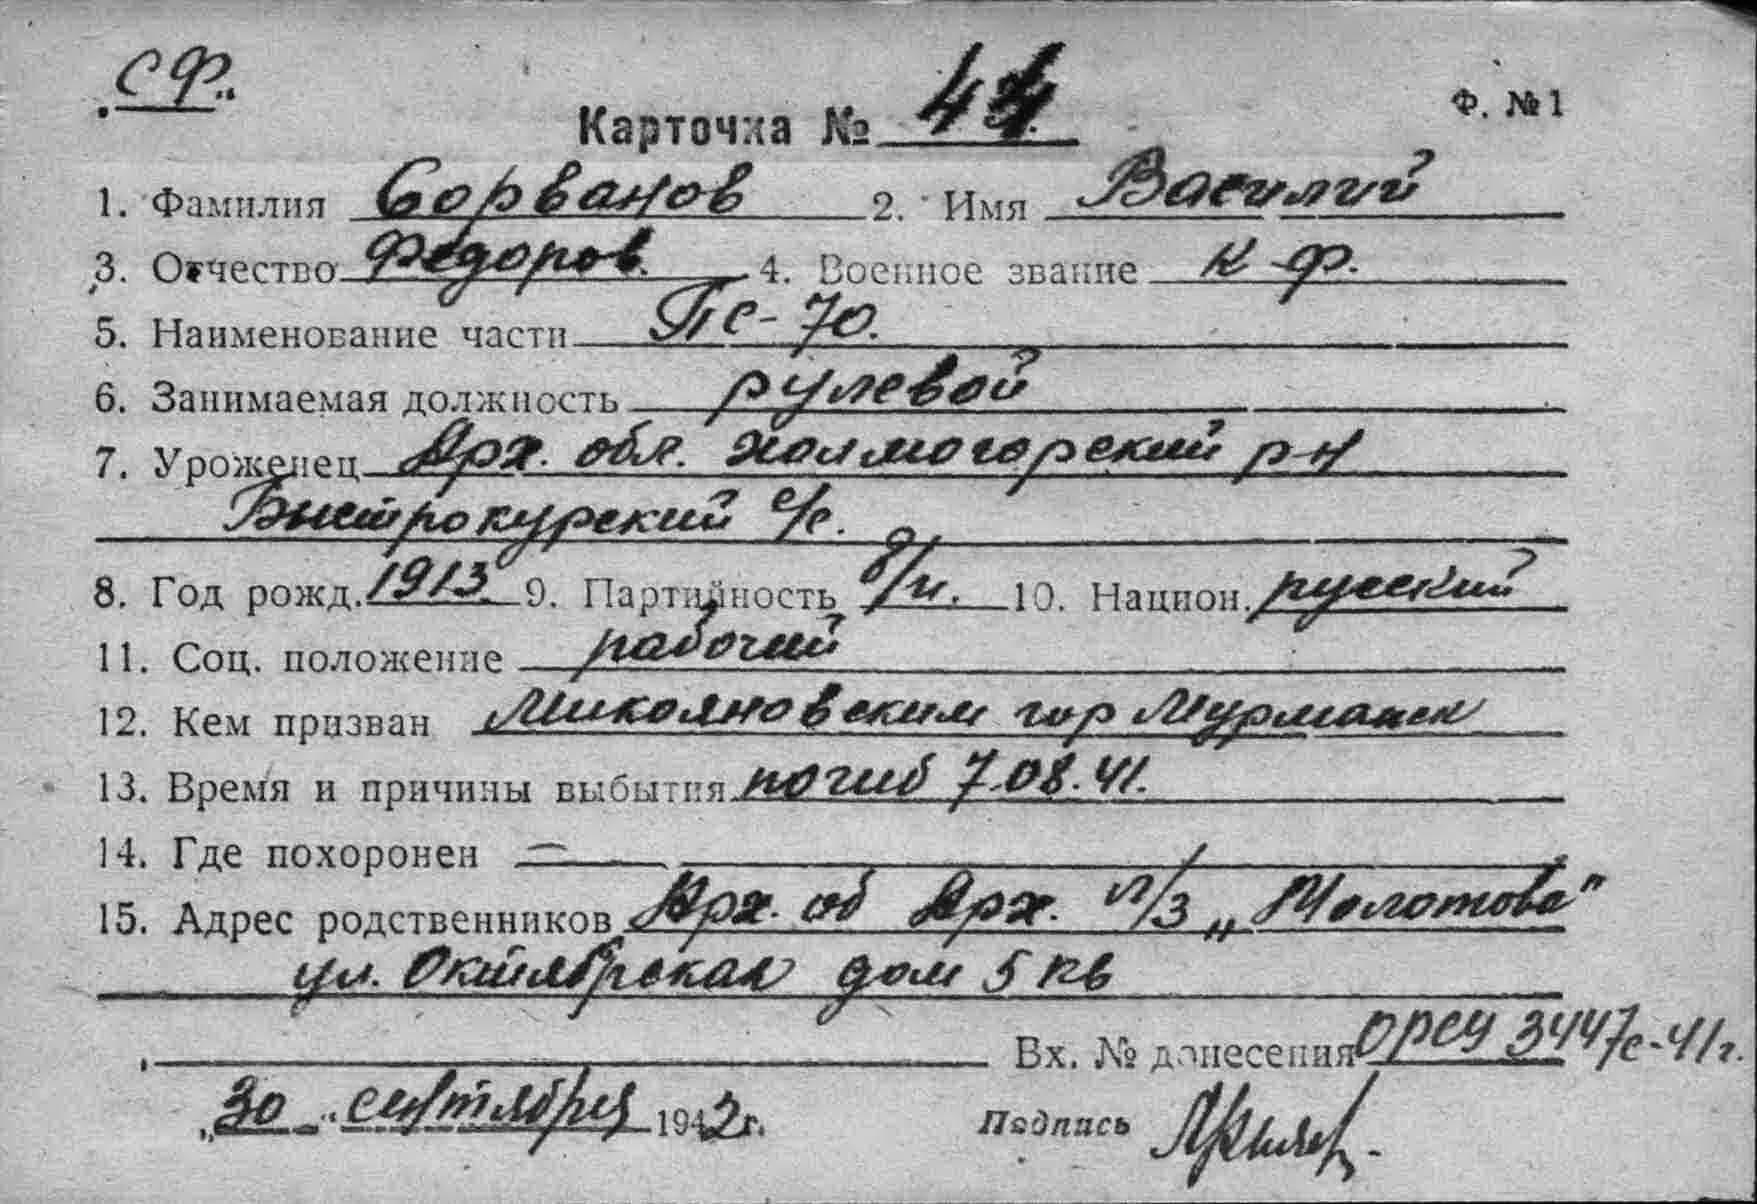 „СФ"
Ф. №1
Карточка № 44
1. Фамилия Сорванов 2. Имя Василий
3. Отчество Федоров. 4. Военное звание к-ф.
5. Наименование части ПС-70.
6. Занимаемая должность рулевой
7. Уроженец Арх. обл. Холмогорский р-н
Быстрокурский с/с.
8. Год рожд. 1913 9. Партийность б/п. 10. Национ. русский
11. Соц. положение рабочий
12. Кем призван Микояновским гор Мурманск
13. Время и причины выбытия погиб 7.08.41.
14. Где похоронен —
15. Адрес родственников Арх. об Арх. л/з „Молотова"
ул. Октябрская дом 5 кв
Вх. № донесения ОРСУ 3447с-41г.
„30" сентября 1942г. Подпись